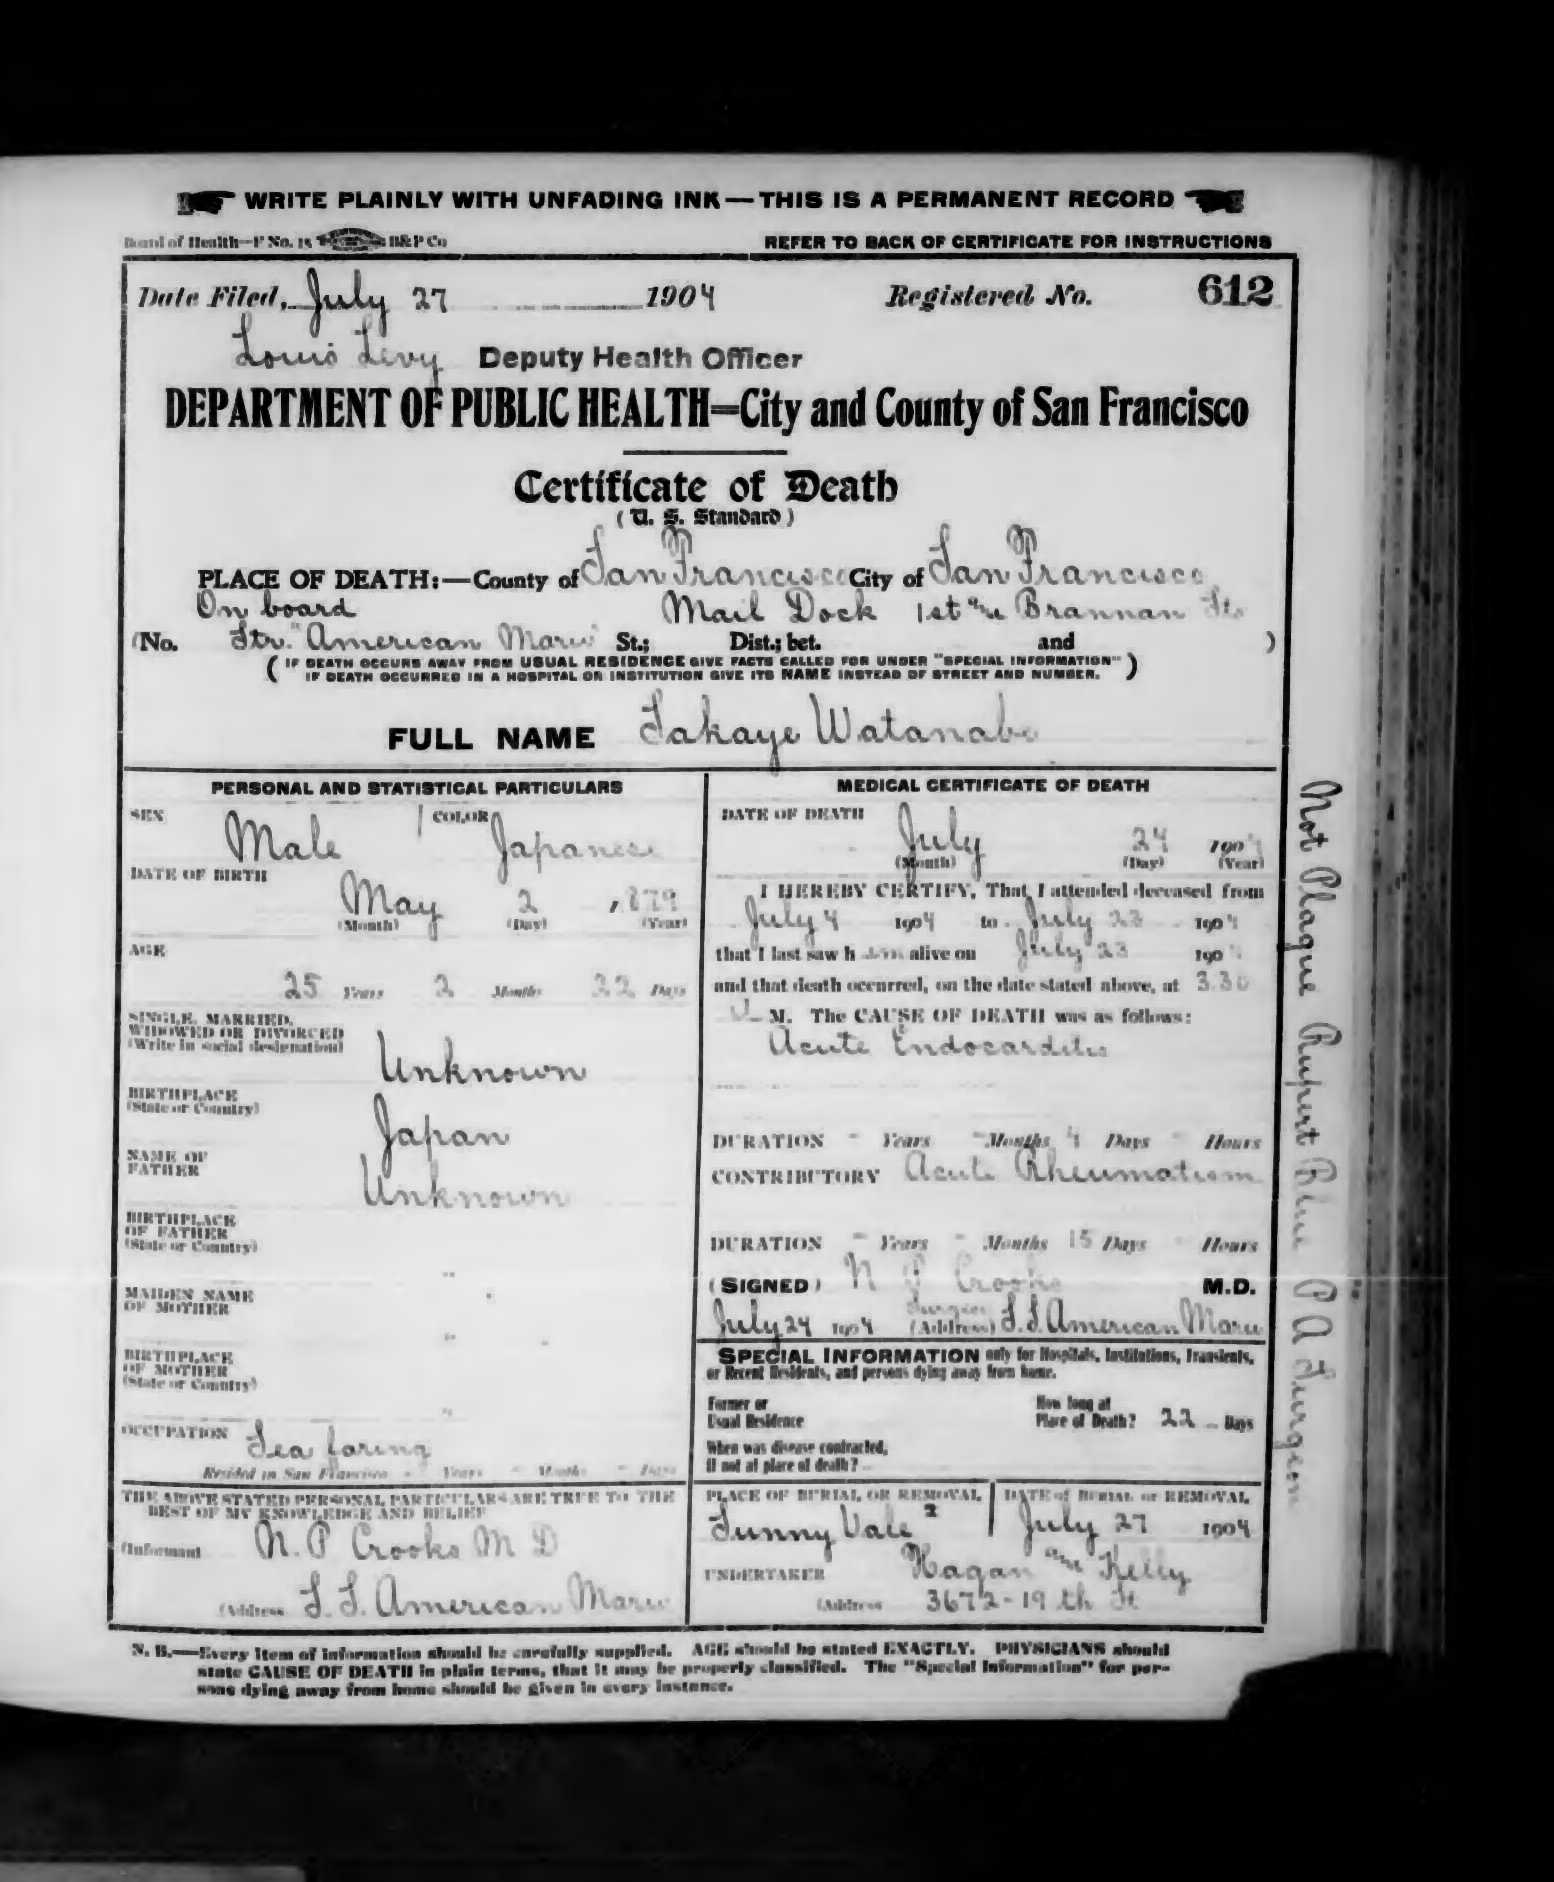 WRITE PLAINLY WITH UNFADING INK — THIS IS A PERMANENT RECORD
Board of Health—F No. 15 B&P Co
REFER TO BACK OF CERTIFICATE FOR INSTRUCTIONS
Date Filed, July 27 1904 Registered No. 612
Louis Levy Deputy Health Officer
DEPARTMENT OF PUBLIC HEALTH=City and County of San Francisco
Certificate of Death
(U. S. Standard)
PLACE OF DEATH:—County of San Francisco City of San Francisco
On board Mail Dock 1st and Brannan Sts
(No. Str. "American Maru" St.; Dist.; bet. and )
( IF DEATH OCCURS AWAY FROM USUAL RESIDENCE GIVE FACTS CALLED FOR UNDER "SPECIAL INFORMATION"
IF DEATH OCCURRED IN A HOSPITAL OR INSTITUTION GIVE ITS NAME INSTEAD OF STREET AND NUMBER. )
FULL NAME Sakaye Watanabe
PERSONAL AND STATISTICAL PARTICULARS
SEX Male COLOR Japanese
DATE OF BIRTH
May 2 , 879
(Month) (Day) (Year)
AGE
25 Years 2 Months 22 Days
SINGLE, MARRIED,
WIDOWED OR DIVORCED
(Write in social designation)
Unknown
BIRTHPLACE
(State or Country)
Japan
NAME OF
FATHER
Unknown
BIRTHPLACE
OF FATHER
(State or Country)
"
MAIDEN NAME
OF MOTHER
"
BIRTHPLACE
OF MOTHER
(State or Country)
"
OCCUPATION Sea faring
Resided in San Francisco - Years - Months - Days
THE ABOVE STATED PERSONAL PARTICULARS ARE TRUE TO THE
BEST OF MY KNOWLEDGE AND BELIEF
(Informant N. P Crooks M D
(Address S. S. American Maru
MEDICAL CERTIFICATE OF DEATH
DATE OF DEATH
July 24 1904
(Month) (Day) (Year)
I HEREBY CERTIFY, That I attended deceased from
July 4 1904 to July 23 1904
that I last saw h im alive on July 23 1904
and that death occurred, on the date stated above, at 3.30
M. The CAUSE OF DEATH was as follows:
Acute Endocarditis
DURATION - Years - Months 4 Days - Hours
CONTRIBUTORY Acute Rheumatism
DURATION - Years - Months 15 Days Hours
(SIGNED) N P Crooks M.D.
Surgeon
July 24 1904 (Address) S.S. American Maru
SPECIAL INFORMATION only for Hospitals, Institutions, Transients,
or Recent Residents, and persons dying away from home.
Former or
Usual Residence
How long at
Place of Death? 22 Days
When was disease contracted,
If not at place of death?
PLACE OF BURIAL OR REMOVAL DATE of BURIAL or REMOVAL
Sunny Vale July 27 1904
UNDERTAKER Hagan and Kelly
(Address 3672-19 th St
N. B.—Every item of information should be carefully supplied. AGE should be stated EXACTLY. PHYSICIANS should
state CAUSE OF DEATH in plain terms, that it may be properly classified. The "Special Information" for per-
sons dying away from home should be given in every instance.
Not Plague Rupert Blue P A Surgeon